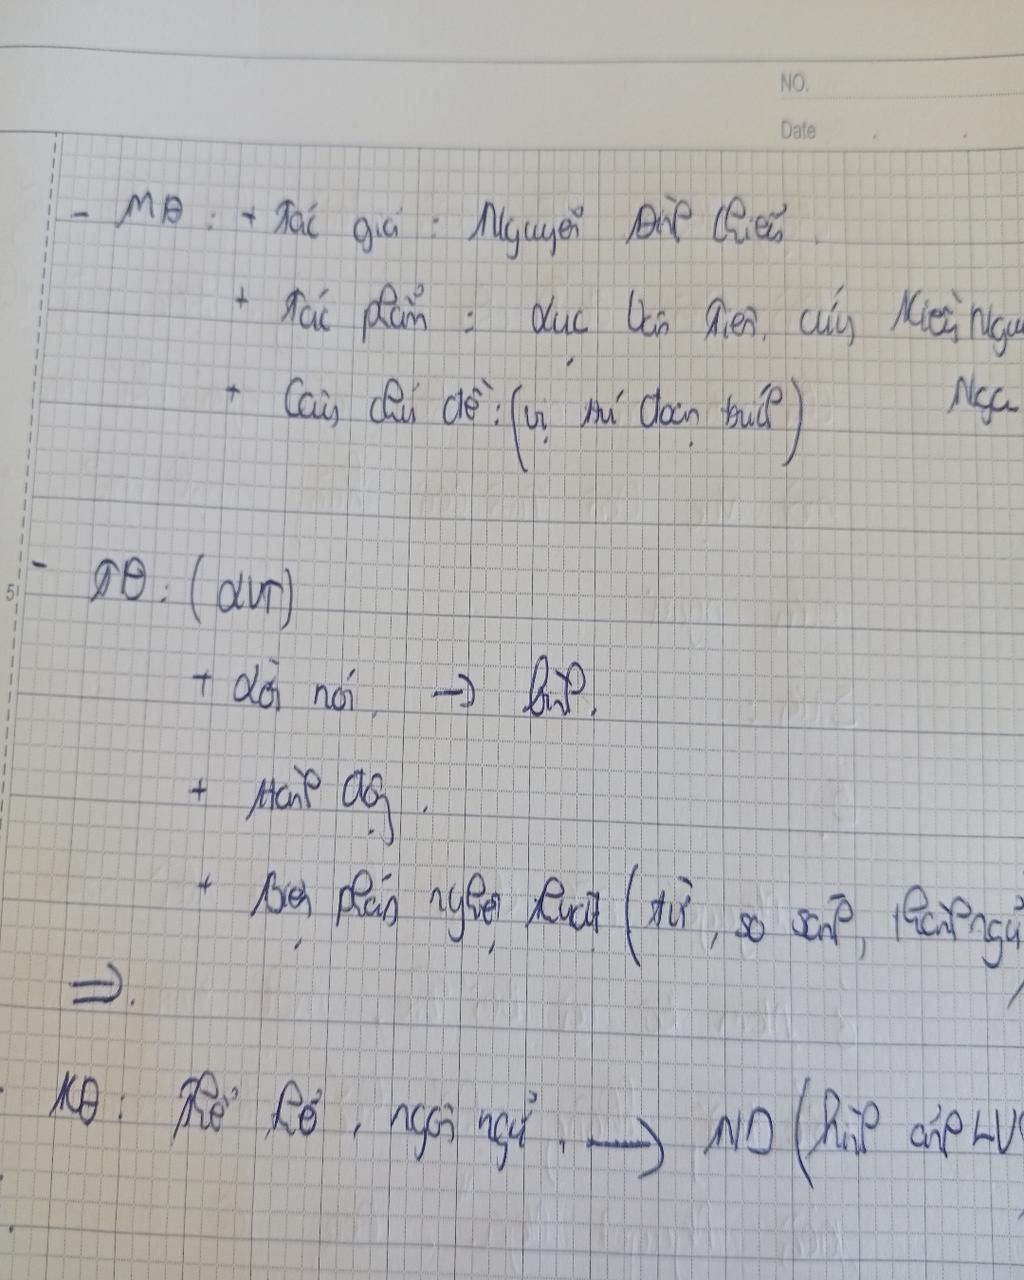 NO.
Date
- MB: + Tác giả: Nguyễn Đình Chiểu.
+ Tác phẩm: Lục Vân Tiên, cứu Kiều Nguyệt
Nga
+ Câu chủ đề: (vị trí đoạn trích)
5
- TB: (LVT)
+ Lời nói →
+ Hành động.
+ Biện pháp nghệ thuật (từ, so sánh, thành ngữ
⇒.
KB: Thể thơ, ngôn ngữ. → ND (hình ảnh LVT